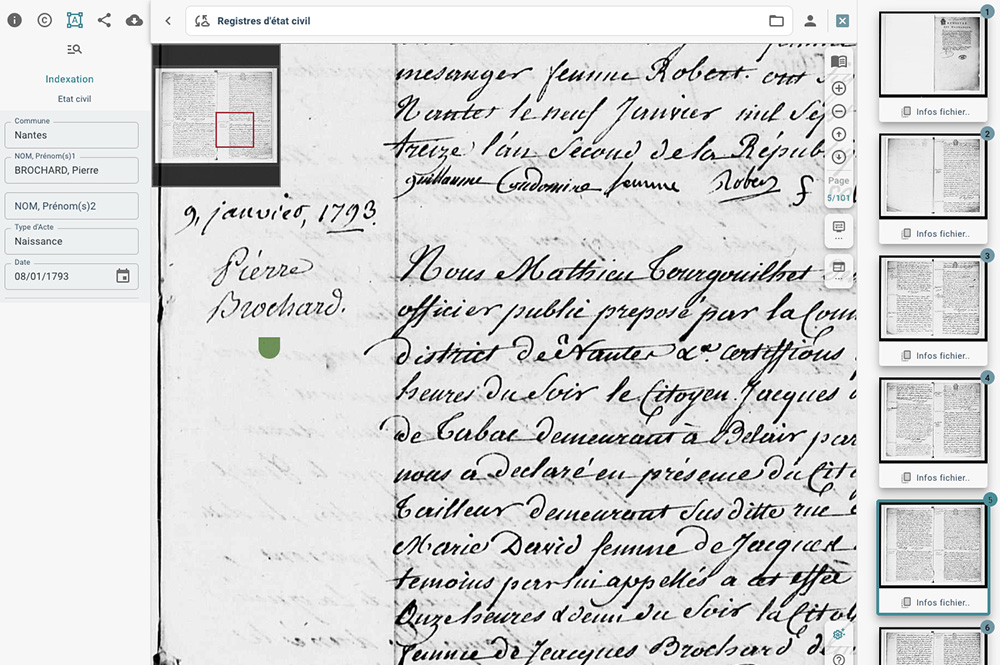 Registres d'état civil
Indexation
Etat civil
Commune
Nantes
NOM, Prénom(s)1
BROCHARD, Pierre
NOM, Prénom(s)2
Type d'Acte
Naissance
Date
08/01/1793
mesanger femme Robert. ont
Nantes le neuf Janvier mil Sep
treize l'án Second de la Répub
guillaume femme Robert
9, janvier, 1793.
Pierre
Brochard.
Nous Mathieu Tourgouilhet
officier public preposé par la Com
district de Nantes &ca. certiffions
heures du Soir le Citoyen Jacques
de Tabac demeurant à Belair par
nous a declaré en présence du Cit
Tailleur demeurant Sus ditte rue
Marie David femme de Jacques
temoins par lui appellés a cet effet
Onze heures & demi du Soir la Citoy
femme de Jacques Brochard de
Page
5/101
1
Infos fichier..
2
Infos fichier..
3
Infos fichier..
4
Infos fichier..
5
Infos fichier..
6